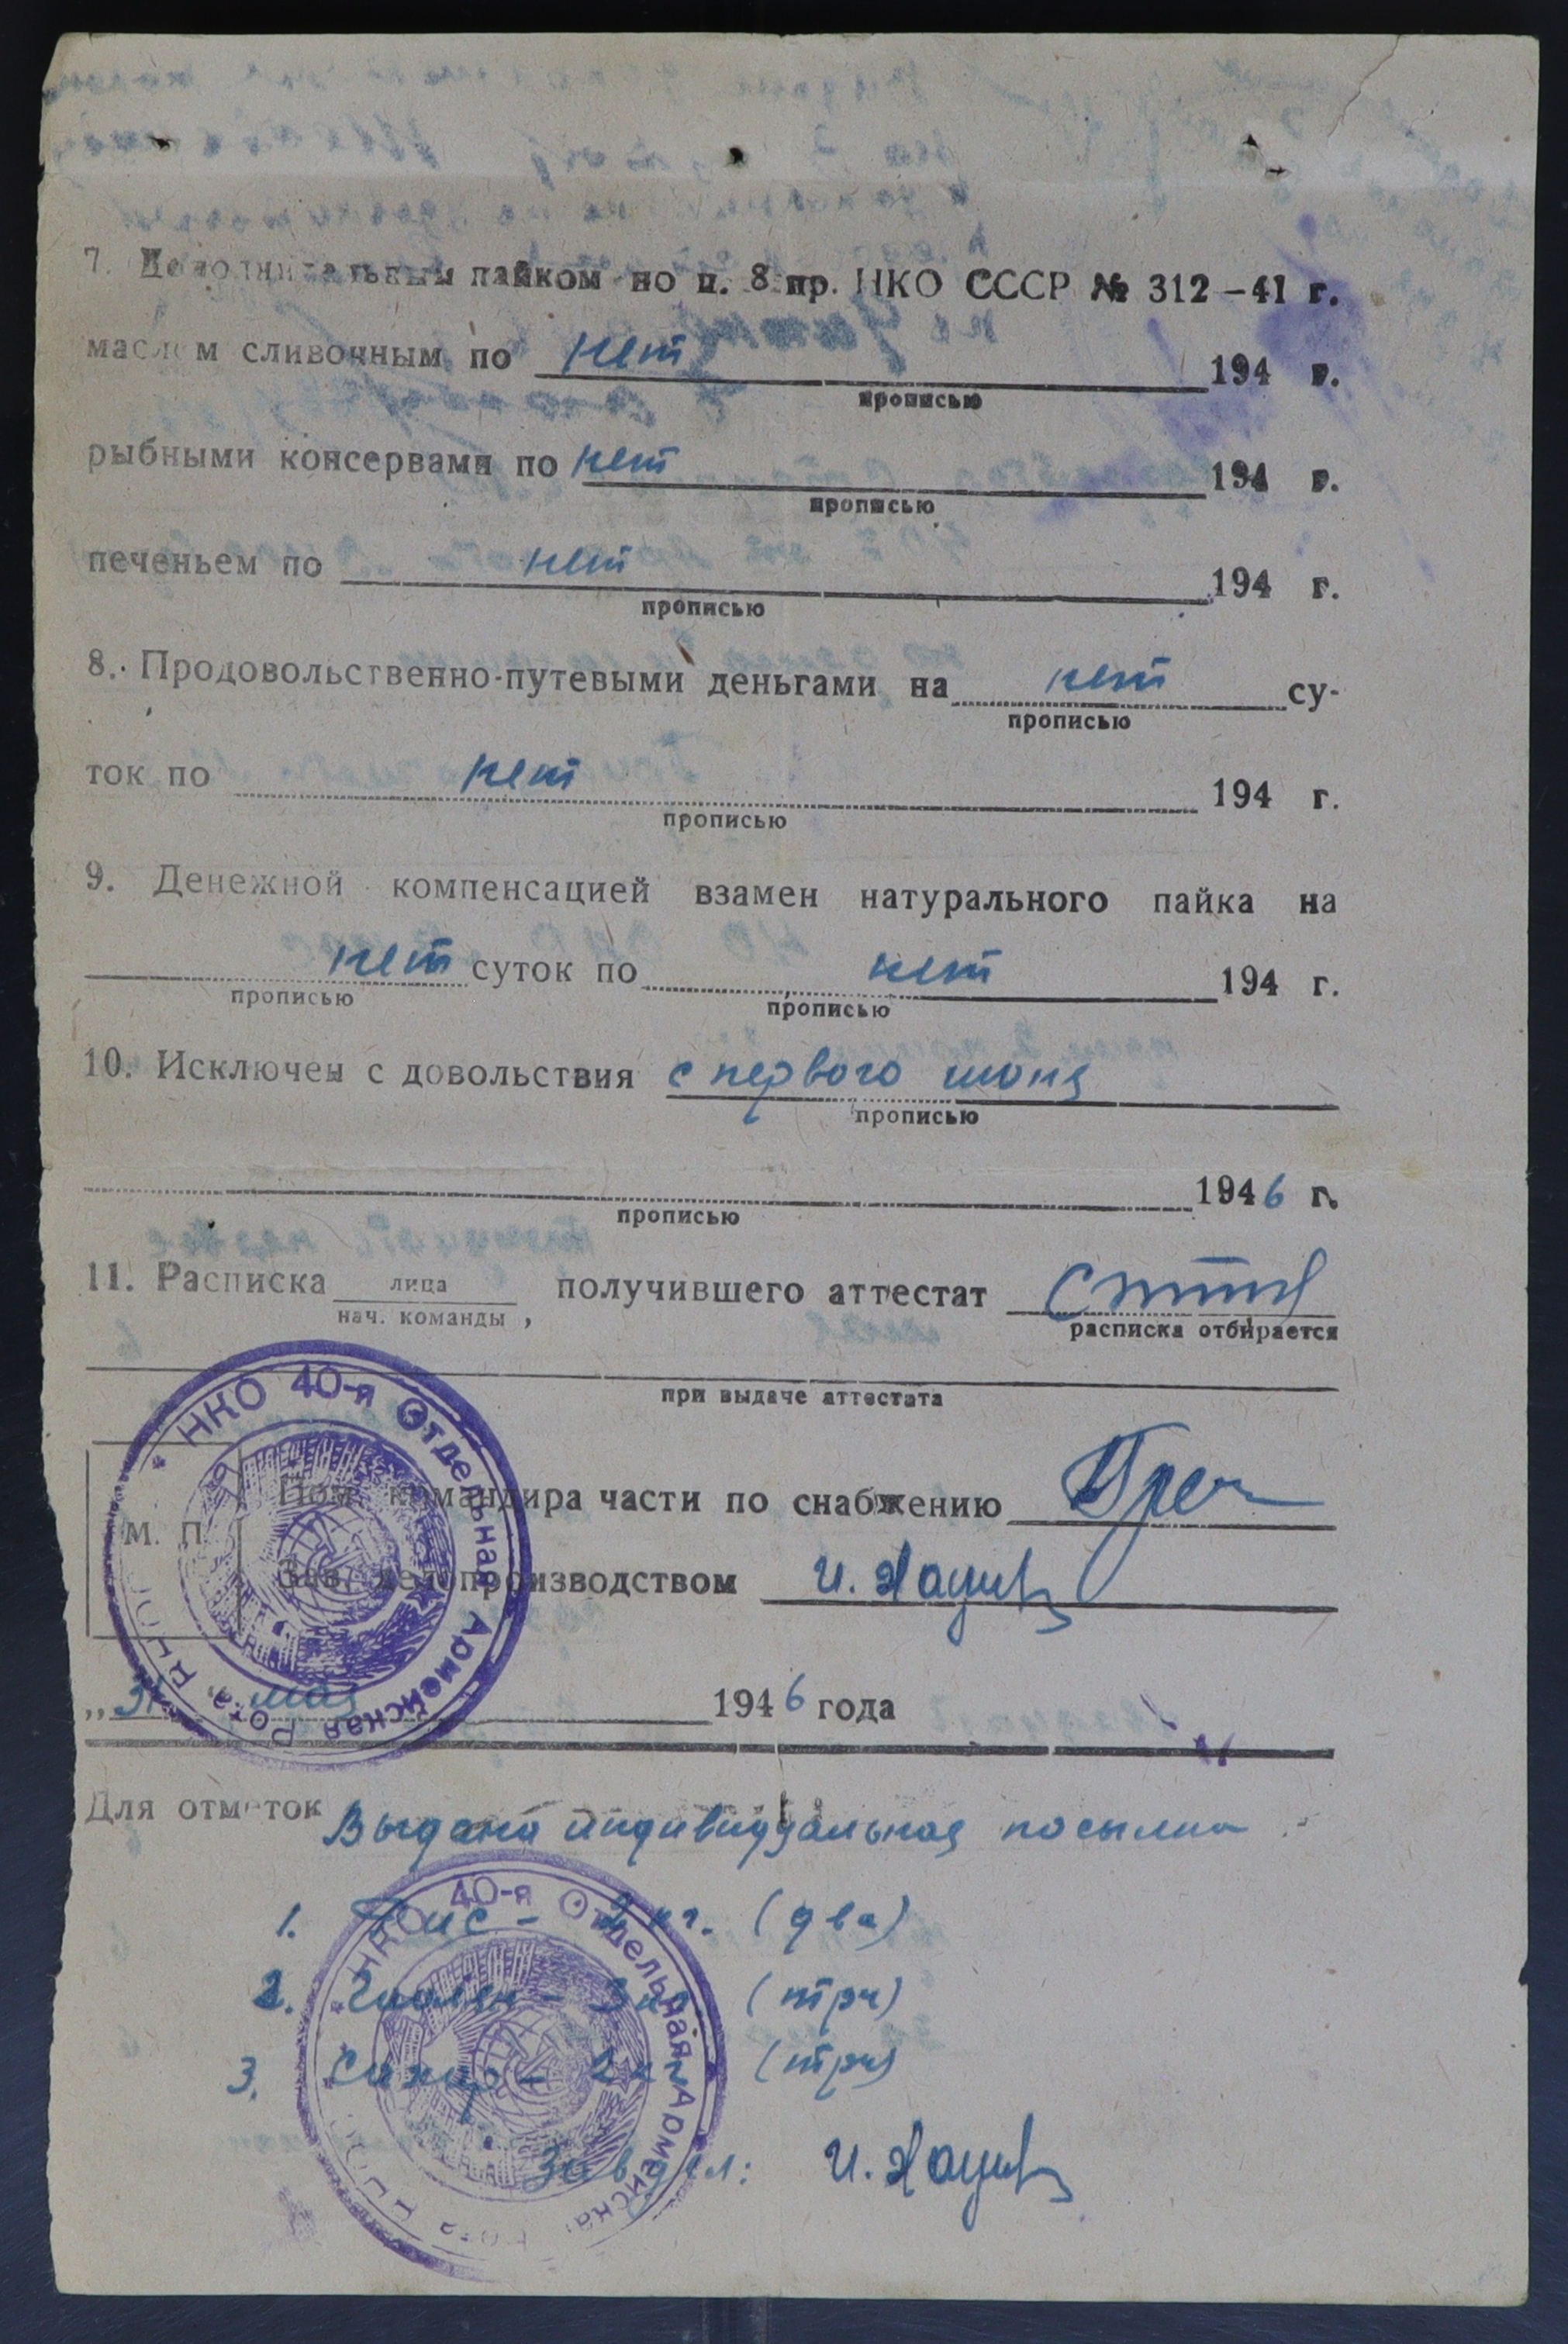 7. Дополнительным пайком по п. 8 пр. НКО СССР № 312-41 г.
маслом сливочным по нет 194 г.
прописью
рыбными консервами по нет 194 г.
прописью
печеньем по нет 194 г.
прописью
8. Продовольственно-путевыми деньгами на нет су-
прописью
ток по нет 194 г.
прописью
9. Денежной компенсацией взамен натурального пайка на
нет суток по нет 194 г.
прописью прописью
10. Исключен с довольствия с первого июня
прописью
1946 г.
прописью
11. Расписка лица получившего аттестат
нач. команды, расписка отбирается
при выдаче аттестата
НКО 40-я Отдельная Армейская Рота
М. П.
Пом. командира части по снабжению
Зав. делопроизводством
„31" мая 1946 года
Для отметок Выдана индивидуальная посылка
НКО 40-я Отдельная Армейска Рота
1. Рис - 2 кг. (два)
2. - 3 кг (три)
3. Сахар - кг (три)
Зав дел: